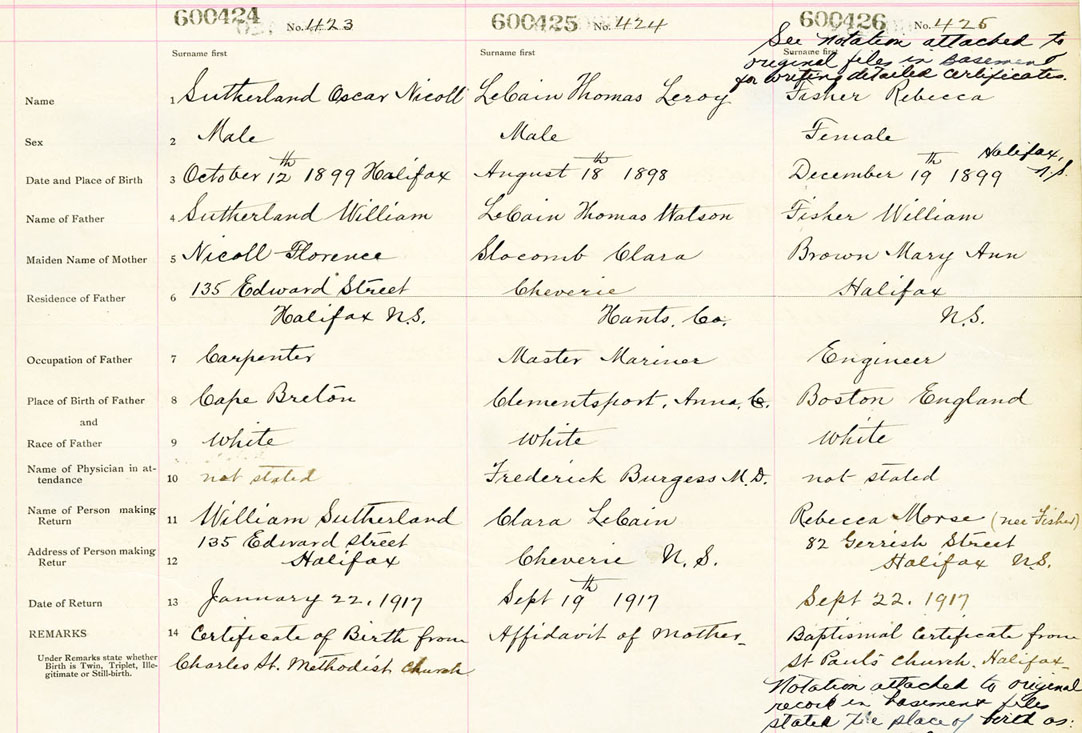 600424 No. 423 600425 No. 424 600426 No. 425
See notation attached to
original files in basement
for writing detailed certificates.
Surname first Surname first Surname first
Name 1 Sutherland Oscar Nicoll LeCain Thomas Leroy Fisher Rebecca
Sex 2 Male Male Female
Date and Place of Birth 3 October 12th 1899 Halifax August 18th 1898 December 19th 1899 Halifax, N.S.
Name of Father 4 Sutherland William LeCain Thomas Watson Fisher William
Maiden Name of Mother 5 Nicoll Florence Slocomb Clara Brown Mary Ann
Residence of Father 6 135 Edward Street Cheverie Halifax
Halifax N.S. Hants. Co. N.S.
Occupation of Father 7 Carpenter Master Mariner Engineer
Place of Birth of Father 8 Cape Breton Clementsport, Anna. C. Boston England
and
Race of Father 9 White White White
Name of Physician in at-
tendance 10 not stated Frederick Burgess M.D. not stated
Name of Person making
Return 11 William Sutherland Clara LeCain Rebecca Morse (nee Fisher)
135 Edward Street 82 Gerrish Street
Address of Person making
Retur 12 Halifax Cheverie N.S. Halifax N.S.
Date of Return 13 January 22, 1917 Sept 19th 1917 Sept 22, 1917
REMARKS 14 Certificate of Birth from Affidavit of Mother Baptismal Certificate from
Under Remarks state whether
Birth is Twin, Triplet, Ille-
gitimate or Still-birth.
Charles St. Methodist Church St Paul's Church, Halifax
Notation attached to original
record in basement files
stated the place of birth as: